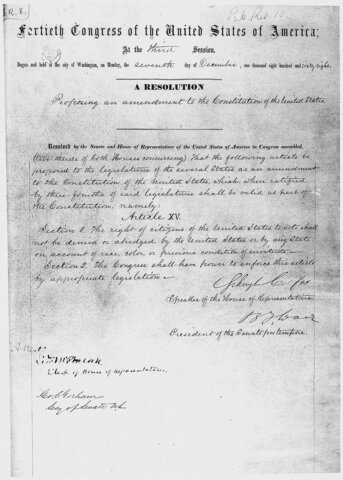 R. 8.
Pub Res
Fortieth Congress of the United States of America;
At the third Session,
Begun and held at the city of Washington, on Monday, the seventh day of December, one thousand eight hundred and sixty-eight.
A RESOLUTION
Proposing an amendment to the Constitution of the United States.
Resolved by the Senate and House of Representatives of the United States of America in Congress assembled,
(two-thirds of both Houses concurring) That the following article be
proposed to the legislatures of the several States as an amendment
to the Constitution of the United States, which, when ratified
by three-fourths of said legislatures shall be valid as part of
the Constitution, namely:
Article XV.
Section 1. The right of citizens of the United States to vote shall
not be denied or abridged by the United States or by any State
on account of race, color, or previous condition of servitude—
Section 2. The Congress shall have power to enforce this article
by appropriate legislation—
Schuyler Colfax
Speaker of the House of Representatives.
B F Wade
President of the Senate pro tempore.
Attest:
Clerk of House of Representatives.
Geo C Gorham
Secy of Senate U.S.